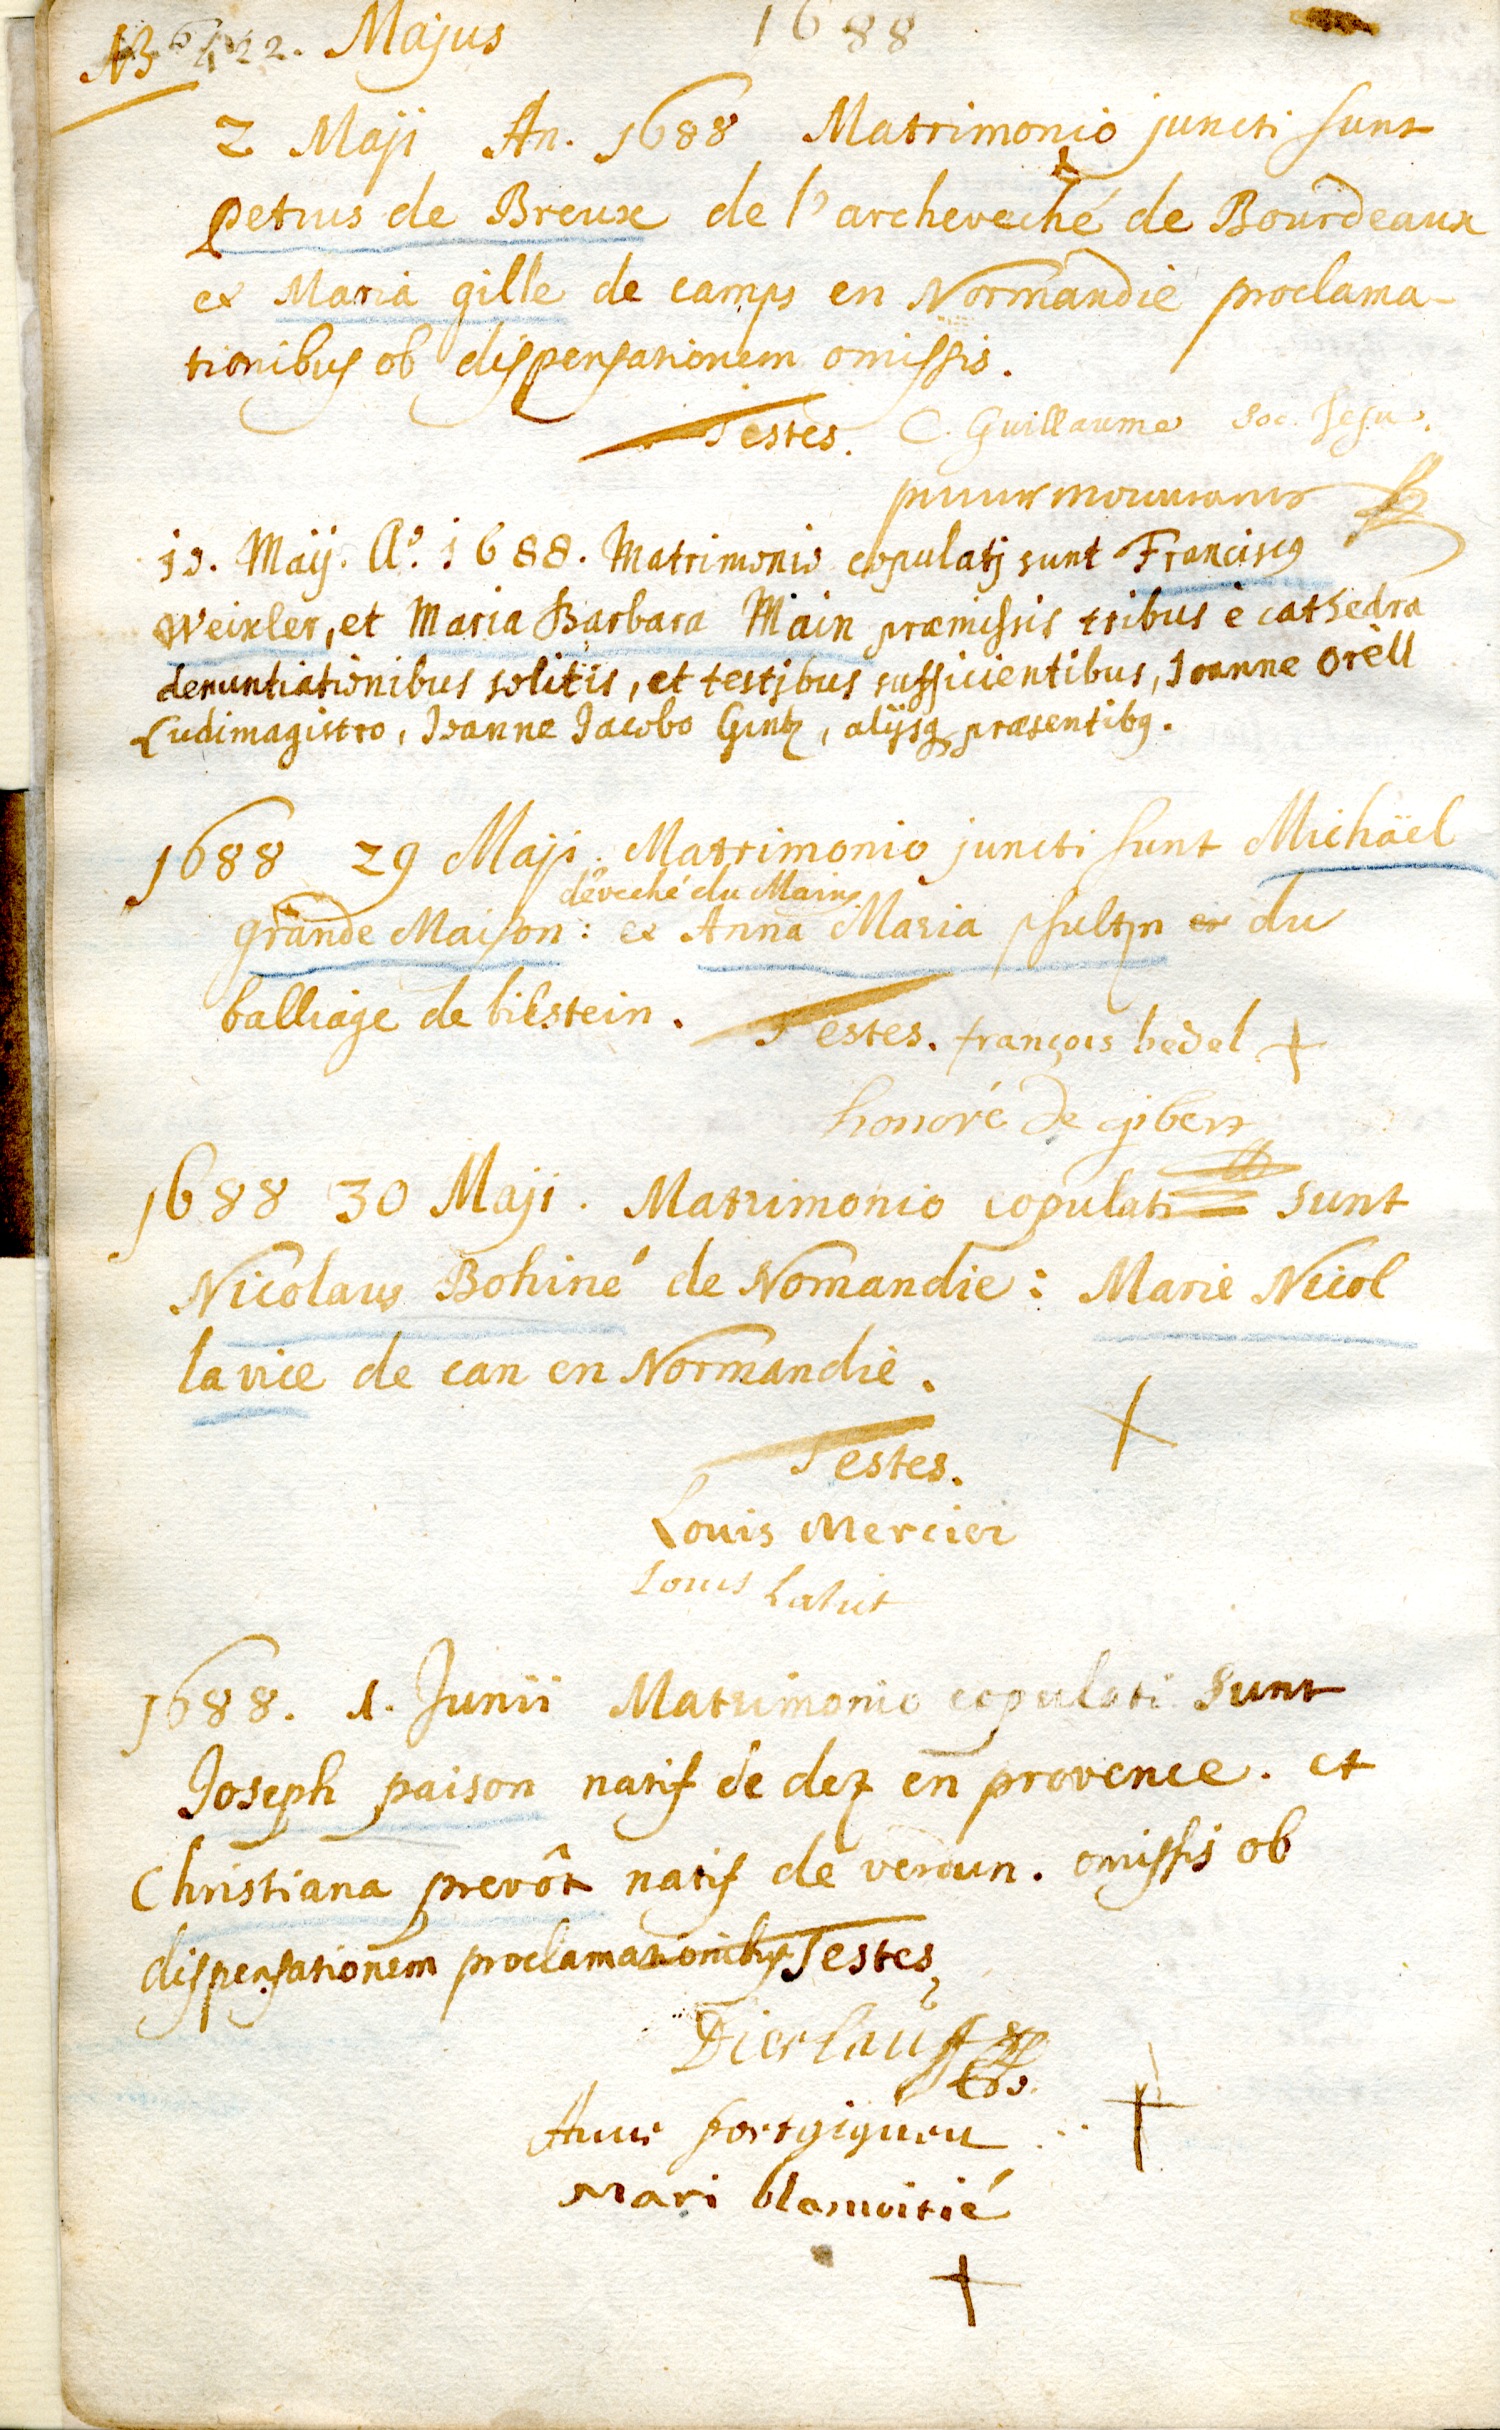 NB Majus 1688
2 Maji An. 1688 Matrimonio juncti sunt
petrus de Breux de l'archeveché de Bourdeaux
et Maria gille de camps en Normandie proclama-
tionibus ob dispensationem omissis.
Testes. C. Guillaume Soc. Jesu.
Maij. Aº. 1688. Matrimonio copulatj sunt Franciscꝰ
Weixler, et Maria Barbara Main præmissis tribus è cathedra
denuntiationibus solitis, et testjbus sufficientibus, Joanne Orëll
Ludimagistro, Joanne Jacobo Gintz, alijsq præsentibꝰ.
1688 29 Maji. Matrimonio juncti sunt Michäel
d'eveché du Mains
grande Maison: et Anna Maria du
balliage de bilstein. Testes. françois bedel
honoré de gibert
1688 30 Maji. Matrimonio copulati sunt
Nicolaus Bohiné de Nomandie: Marie Nicol
la vice de can en Normandie.
Testes.
Louis Mercier
Louis
1688. 1. Junii Matrimonio copulati sunt
Joseph paison natif de dez en provence. et
Christiana prevôt natif de verdun. omissis ob
dispensationem proclamationibus Testes
Mari blamoitié